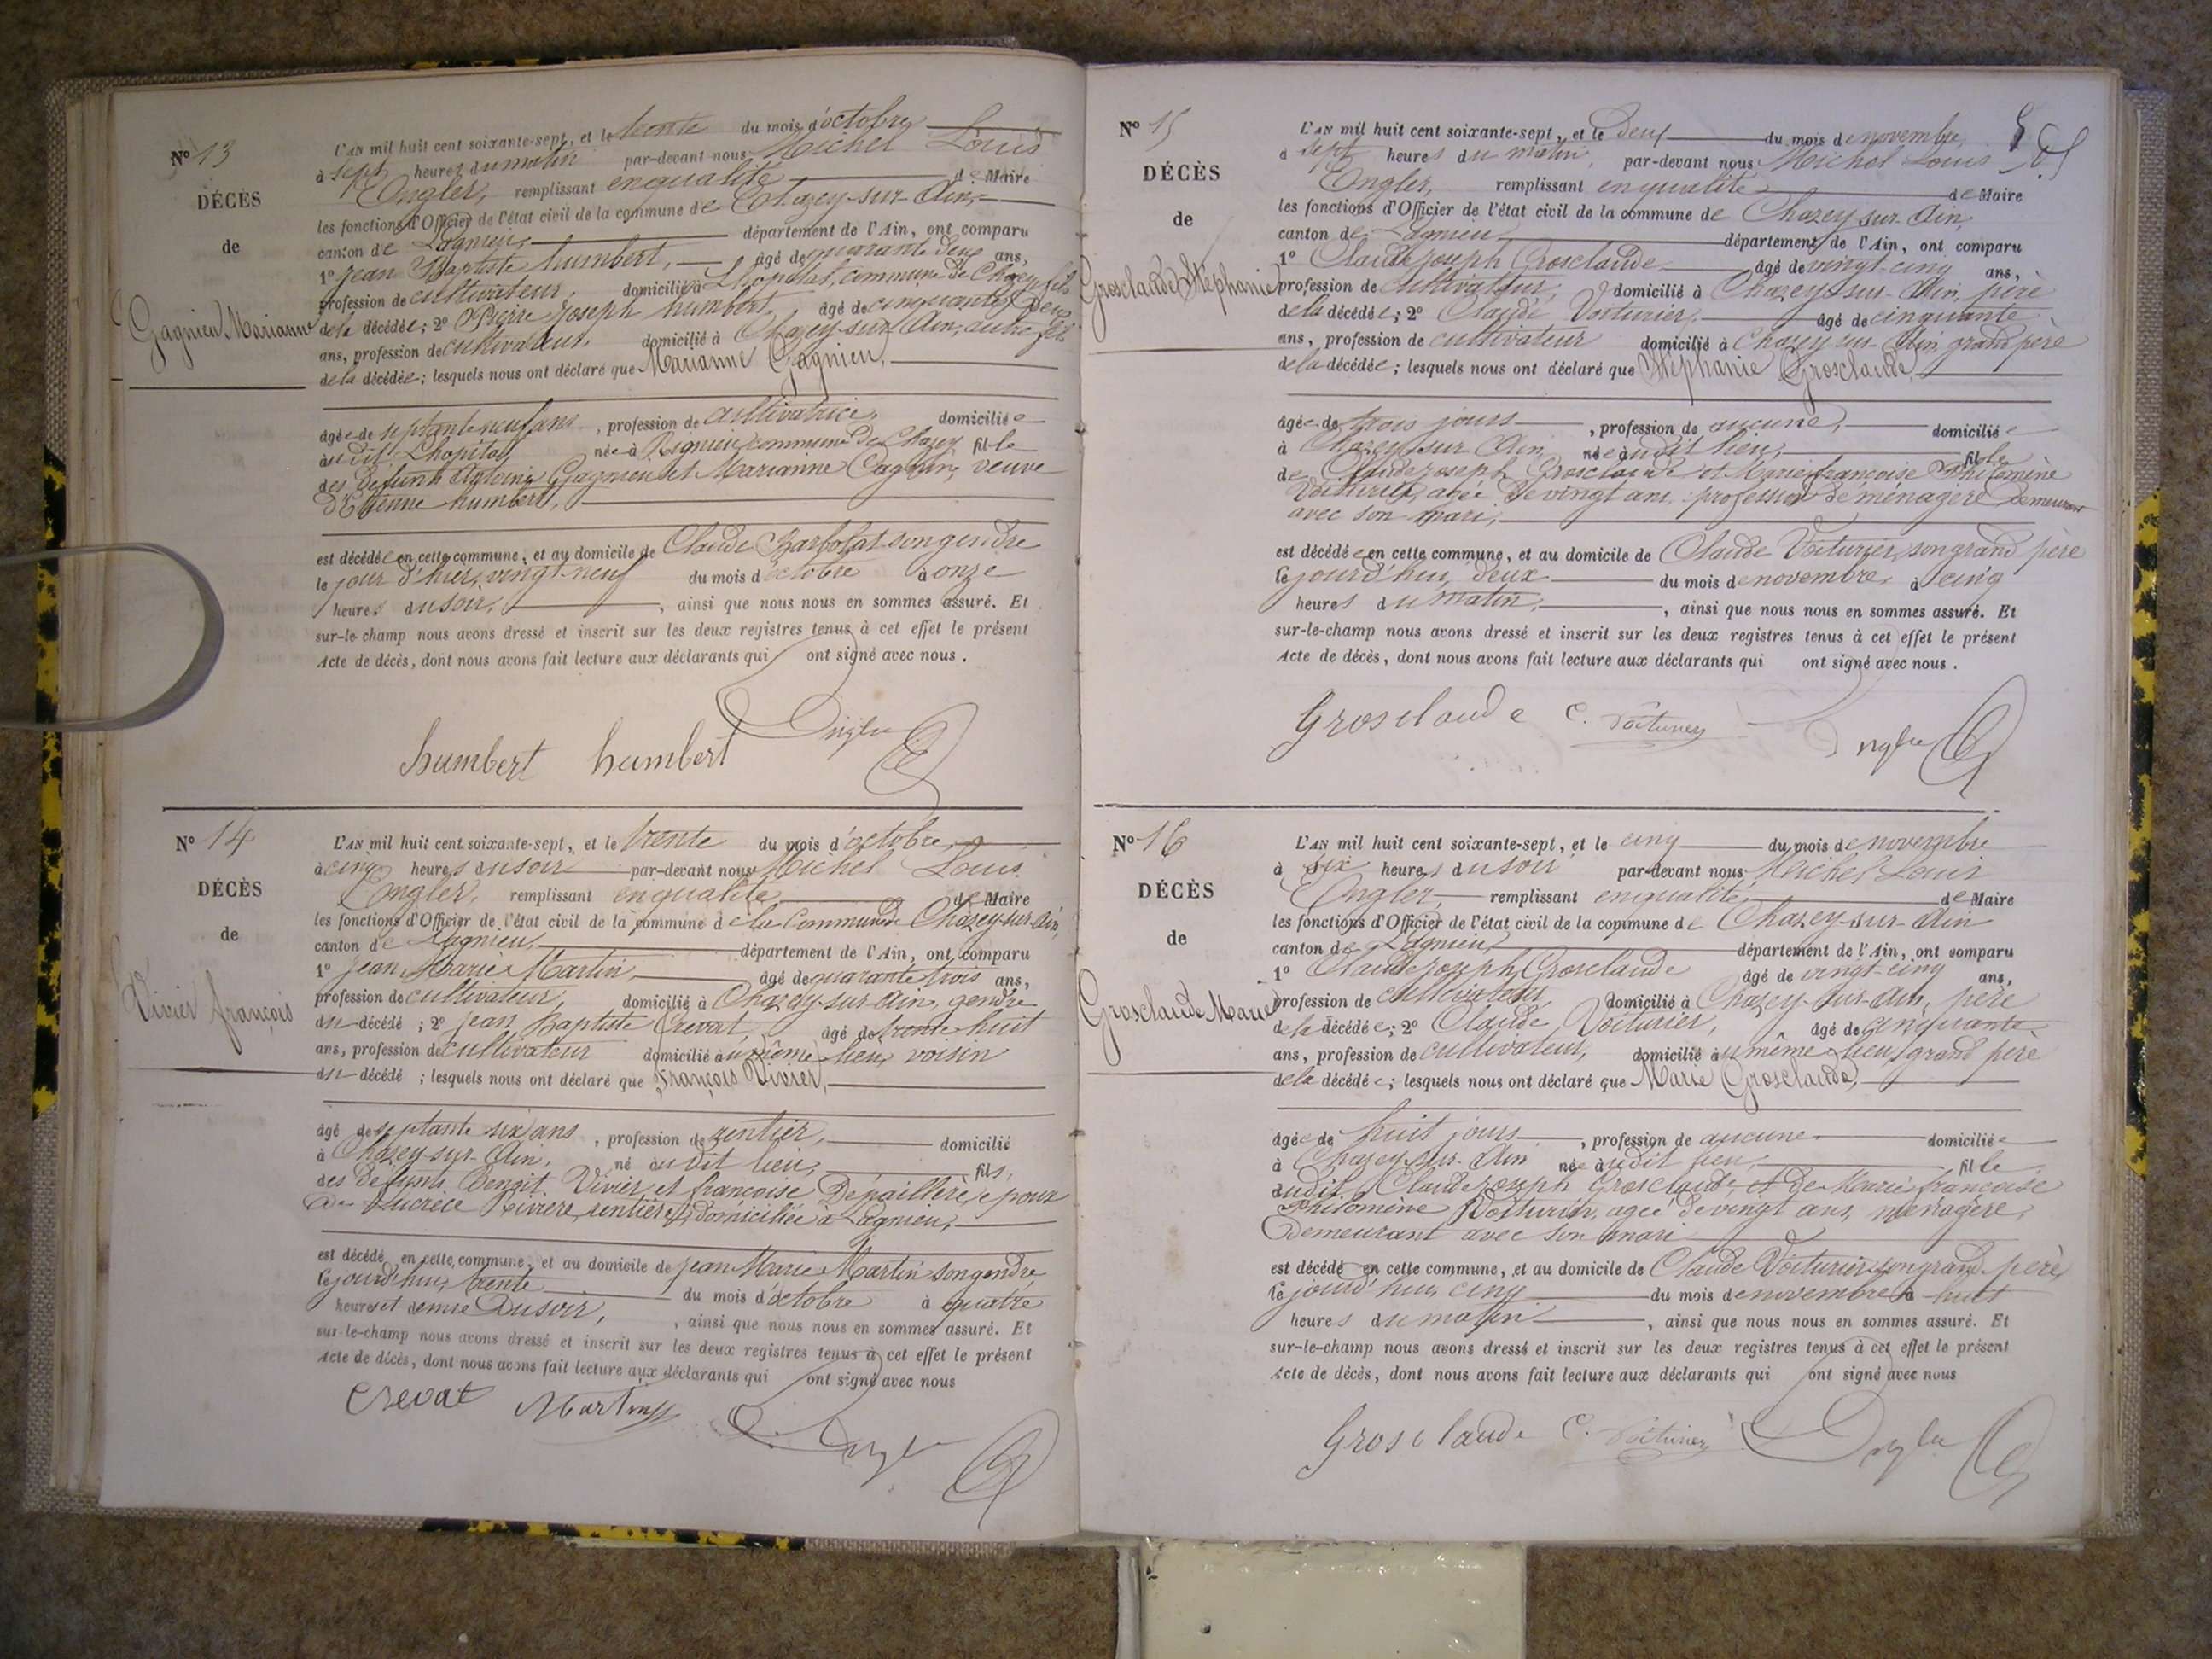 N° 13
DÉCÈS
de
Gagnieu Marianne
L'AN mil huit cent soixante-sept, et le trente du mois d'octobre
à sept heures du matin par-devant nous Michel Louis
Engler, remplissant en qualité de Maire
les fonctions d'Officier de l'état civil de la commune de Chazey-sur-Ain,
canton de Lagnieu, département de l'Ain, ont comparu
1° Jean Baptiste humbert, âgé de quarante deux ans,
profession de cultivateur, domicilié à Lhopital, commune de Chazey, fils
de la décédée; 2° Pierre Joseph humbert, âgé de cinquante deux
ans, profession de cultivateur, domicilié à Chazey-sur-Ain, autre fils
de la décédée; lesquels nous ont déclaré que Marianne Gagnieu,
âgée de septante neuf ans, profession de cultivatrice, domiciliée
audit Lhopital, née à Rignieu commune de Chazey fille
des défunts Antoine Gagnieu et Marianne Cagnin, veuve
d'Etienne humbert,
est décédée en cette commune, et au domicile de Claude Barbolat son gendre
le jour d'hier, vingt-neuf du mois d'octobre à onze
heures du soir, ainsi que nous nous en sommes assuré. Et
sur-le-champ nous avons dressé et inscrit sur les deux registres tenus à cet effet le présent
Acte de décès, dont nous avons fait lecture aux déclarants qui ont signé avec nous.
humbert humbert Engler
N° 14
DÉCÈS
de
Vivier françois
L'AN mil huit cent soixante-sept, et le trente du mois d'octobre,
à cinq heures du soir par-devant nous Michel Louis
Engler, remplissant en qualité de Maire
les fonctions d'Officier de l'état civil de la commune de la commune de Chazey-sur-Ain,
canton de Lagnieu, département de l'Ain, ont comparu
1° Jean Marie Martin, âgé de quarante trois ans,
profession de cultivateur, domicilié à Chazey-sur-Ain, gendre
du décédé; 2° Jean Baptiste Crevat, âgé de trente huit
ans, profession de cultivateur domicilié au même lieu, voisin
du décédé; lesquels nous ont déclaré que françois Vivier,
âgé de septante six ans, profession de rentier, domicilié
à Chazey-sur-Ain, né audit lieu, fils,
des défunts Benoit Vivier et françoise Dépaillère, époux
de Lucrèce Rivière, rentière, domiciliée à Lagnieu,
est décédé en cette commune, et au domicile de Jean Marie Martin son gendre
le jourd'hui, trente du mois d'octobre à quatre
heures et demie du soir, ainsi que nous nous en sommes assuré. Et
sur-le-champ nous avons dressé et inscrit sur les deux registres tenus à cet effet le présent
Acte de décès, dont nous avons fait lecture aux déclarants qui ont signé avec nous
Crevat Martin Engler
N° 15
DÉCÈS
de
Grosclaude Stéphanie
L'AN mil huit cent soixante-sept, et le deux du mois de novembre,
à sept heures du matin, par-devant nous Michel Louis
Engler, remplissant en qualité de Maire
les fonctions d'Officier de l'état civil de la commune de Chazey-sur-Ain,
canton de Lagnieu, département de l'Ain, ont comparu
1° Claude Joseph Grosclaude âgé de vingt-cinq ans,
profession de cultivateur, domicilié à Chazey-sur-Ain, père
de la décédée; 2° Claude Voiturier, âgé de cinquante
ans, profession de cultivateur domicilié à Chazey-sur-Ain grand père
de la décédée; lesquels nous ont déclaré que Stéphanie Grosclaude,
âgée de trois jours, profession de aucune, domiciliée
à Chazey-sur-Ain, née audit lieu, fille
de Claude Joseph Grosclaude et Marie françoise Philomène
Voiturier, agée de vingt ans, profession de ménagère demeurant
avec son mari,
est décédée en cette commune, et au domicile de Claude Voiturier, son grand père
le jourd'hui, deux du mois de novembre à cinq
heures du matin, ainsi que nous nous en sommes assuré. Et
sur-le-champ nous avons dressé et inscrit sur les deux registres tenus à cet effet le présent
Acte de décès, dont nous avons fait lecture aux déclarants qui ont signé avec nous.
Grosclaude C. Voiturier Engler
N° 16
DÉCÈS
de
Grosclaude Marie
L'AN mil huit cent soixante-sept, et le cinq du mois de novembre
à six heures du soir par-devant nous Michel Louis
Engler, remplissant en qualité de Maire
les fonctions d'Officier de l'état civil de la commune de Chazey-sur-Ain
canton de Lagnieu département de l'Ain, ont comparu
1° Claude Joseph Grosclaude âgé de vingt-cinq ans,
profession de cultivateur, domicilié à Chazey-sur-Ain, père
de la décédée; 2° Claude Voiturier, âgé de cinquante
ans, profession de cultivateur, domicilié au même lieu, grand père
de la décédée; lesquels nous ont déclaré que Marie Grosclaude,
âgée de huit jours, profession de aucune domiciliée
à Chazey-sur-Ain née audit lieu, fille
dudit Claude Joseph Grosclaude, et de Marie françoise
Philomène Voiturier, agée de vingt ans, ménagère,
demeurant avec son mari
est décédé en cette commune, et au domicile de Claude Voiturier son grand père,
le jourd'hui, cinq du mois de novembre à huit
heures du matin, ainsi que nous nous en sommes assuré. Et
sur-le-champ nous avons dressé et inscrit sur les deux registres tenus à cet effet le présent
Acte de décès, dont nous avons fait lecture aux déclarants qui ont signé avec nous
Grosclaude C. Voiturier Engler